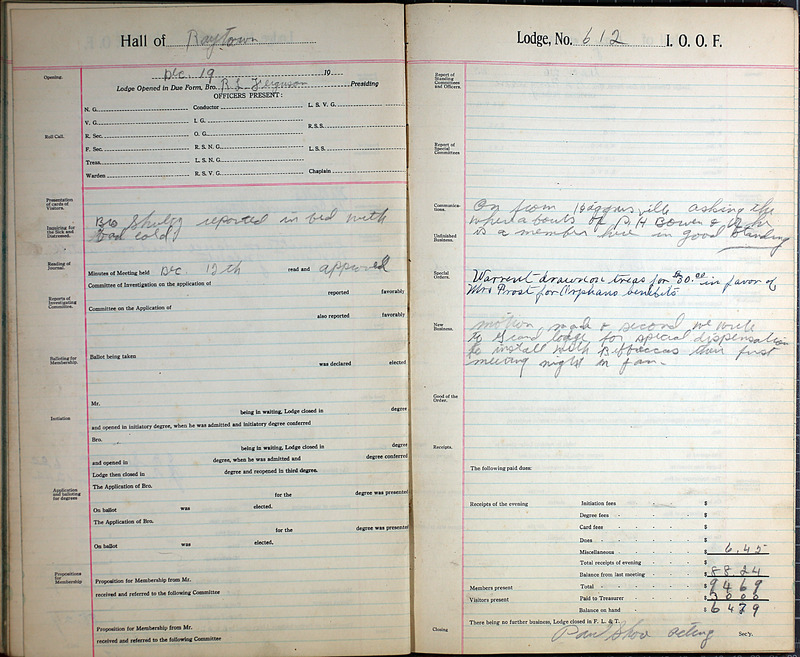 Hall of Raytown
Dec. 19 19
Lodge Opened in Due Form, Bro. R L Ferguson Presiding
OFFICERS PRESENT:
Opening.
N. G. Conductor L. S. V. G.
V. G. I. G. R.S.S.
Roll Call.
R. Sec. O. G.
F. Sec. R. S. N. G. L. S. S.
Treas. L. S. N. G.
Warden R. S. V. G. Chaplain
Presentation of cards of Visitors.
Inquiring for the Sick and Distressed.
Bro reported in bed with
bad cold
Reading of Journal.
Minutes of Meeting held Dec. 12th read and approved
Committee of Investigation on the application of
reported favorably
Reports of Investigating Committee.
Committee on the Application of
also reported favorably
Balloting for Membership.
Ballot being taken
was declared elected
Mr.
being in waiting, Lodge closed in degree
Initiation
and opened in initiatory degree, when he was admitted and initiatory degree conferred
Bro.
being in waiting, Lodge closed in degree
and opened in degree, when he was admitted and degree conferred
Lodge then closed in degree and reopened in third degree.
Application and balloting for degrees
The Application of Bro.
for the degree was presented
On ballot was elected.
The Application of Bro.
for the degree was presented
On ballot was elected.
Propositions for Membership
Proposition for Membership from Mr.
received and referred to the following Committee
Proposition for Membership from Mr.
received and referred to the following Committee
Lodge, No. 612 I. O. O. F.
Report of Standing Committees and Officers.
Report of Special Committees
Communications.
On from Higginsville asking the
whereabouts of P H Bower &
is a member here in good standing
Unfinished Business.
Special Orders.
Warrent drawn on treas for $30.00 in favor of
Mrs Prost for Orphans benefits
New Business.
motion mad & second we write
to Grand lodge for special dispensation
to install with Rebbeccas their first
meeting night in Jan.
Good of the Order.
Receipts.
The following paid dues:
Receipts of the evening Initiation fees $
Degree fees $
Card fees $
Dues $
Miscellaneous $ 6.45
Total receipts of evening $
Balance from last meeting $ 88 24
Members present Total $ 94 69
Visitors present Paid to Treasurer $ 30 00
Balance on hand $ 64 79
There being no further business, Lodge closed in F. L. & T.
Closing
Paul Shoo acting Sec'y.